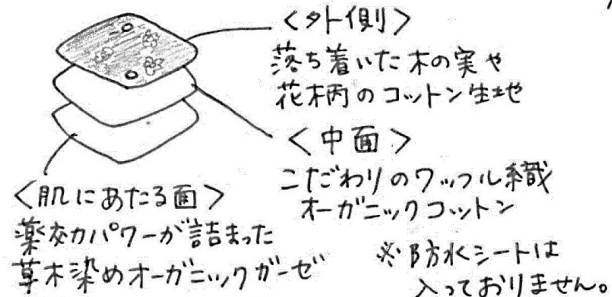 <外側>
落ち着いた木の実や
花柄のコットン生地
<中面>
こだわりのワッフル織
オーガニックコットン
<肌にあたる面>
薬効パワーが詰まった
草木染めオーガニックガーゼ
※防水シートは
入っておりません。